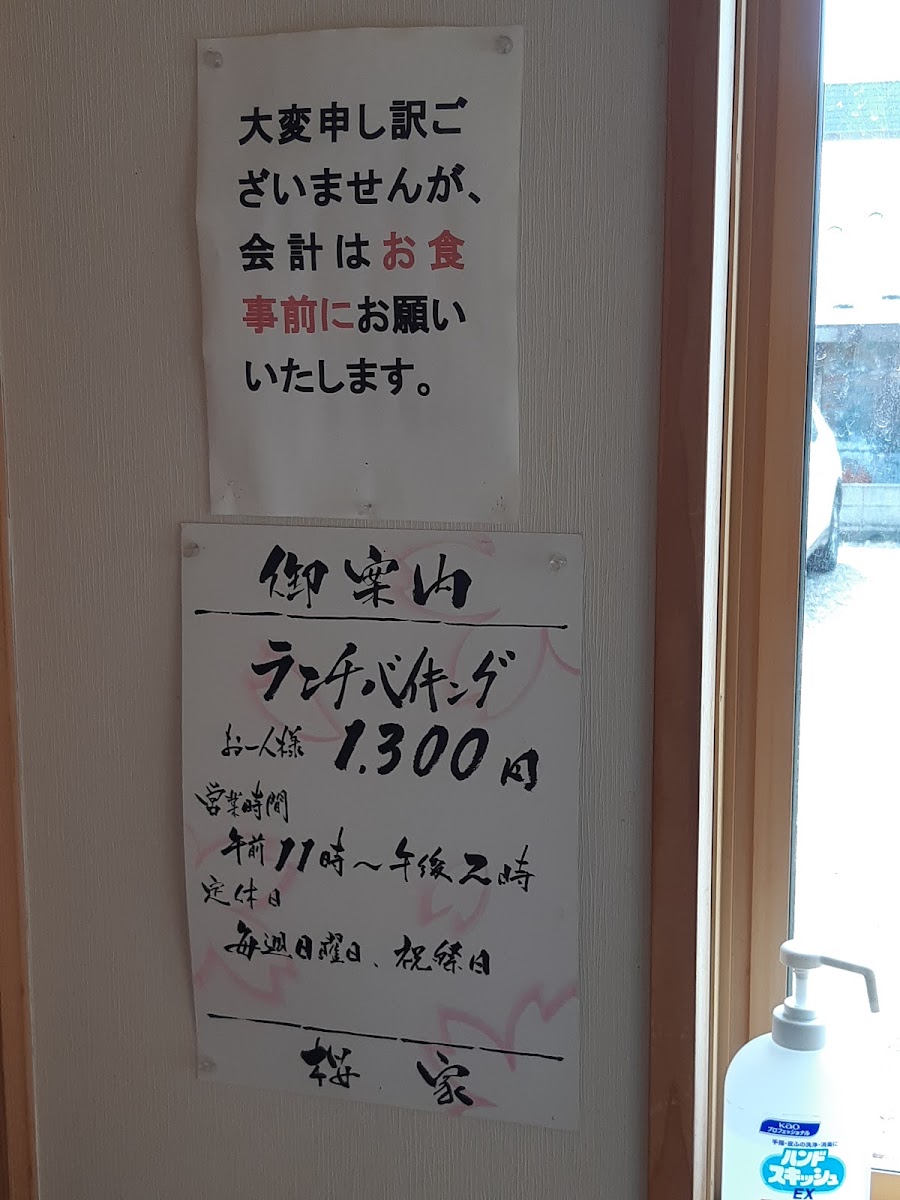 大変申し訳ご
ざいませんが、
会計はお食
事前にお願い
いたします。
御案内
ランチバイキング
お一人様 1.300円
営業時間
午前11時～午後2時
定休日
毎週日曜日、祝祭日
桜家
Kao
プロフェッショナル
手指・皮ふの洗浄・消毒に
ハンド
スキッシュ
EX